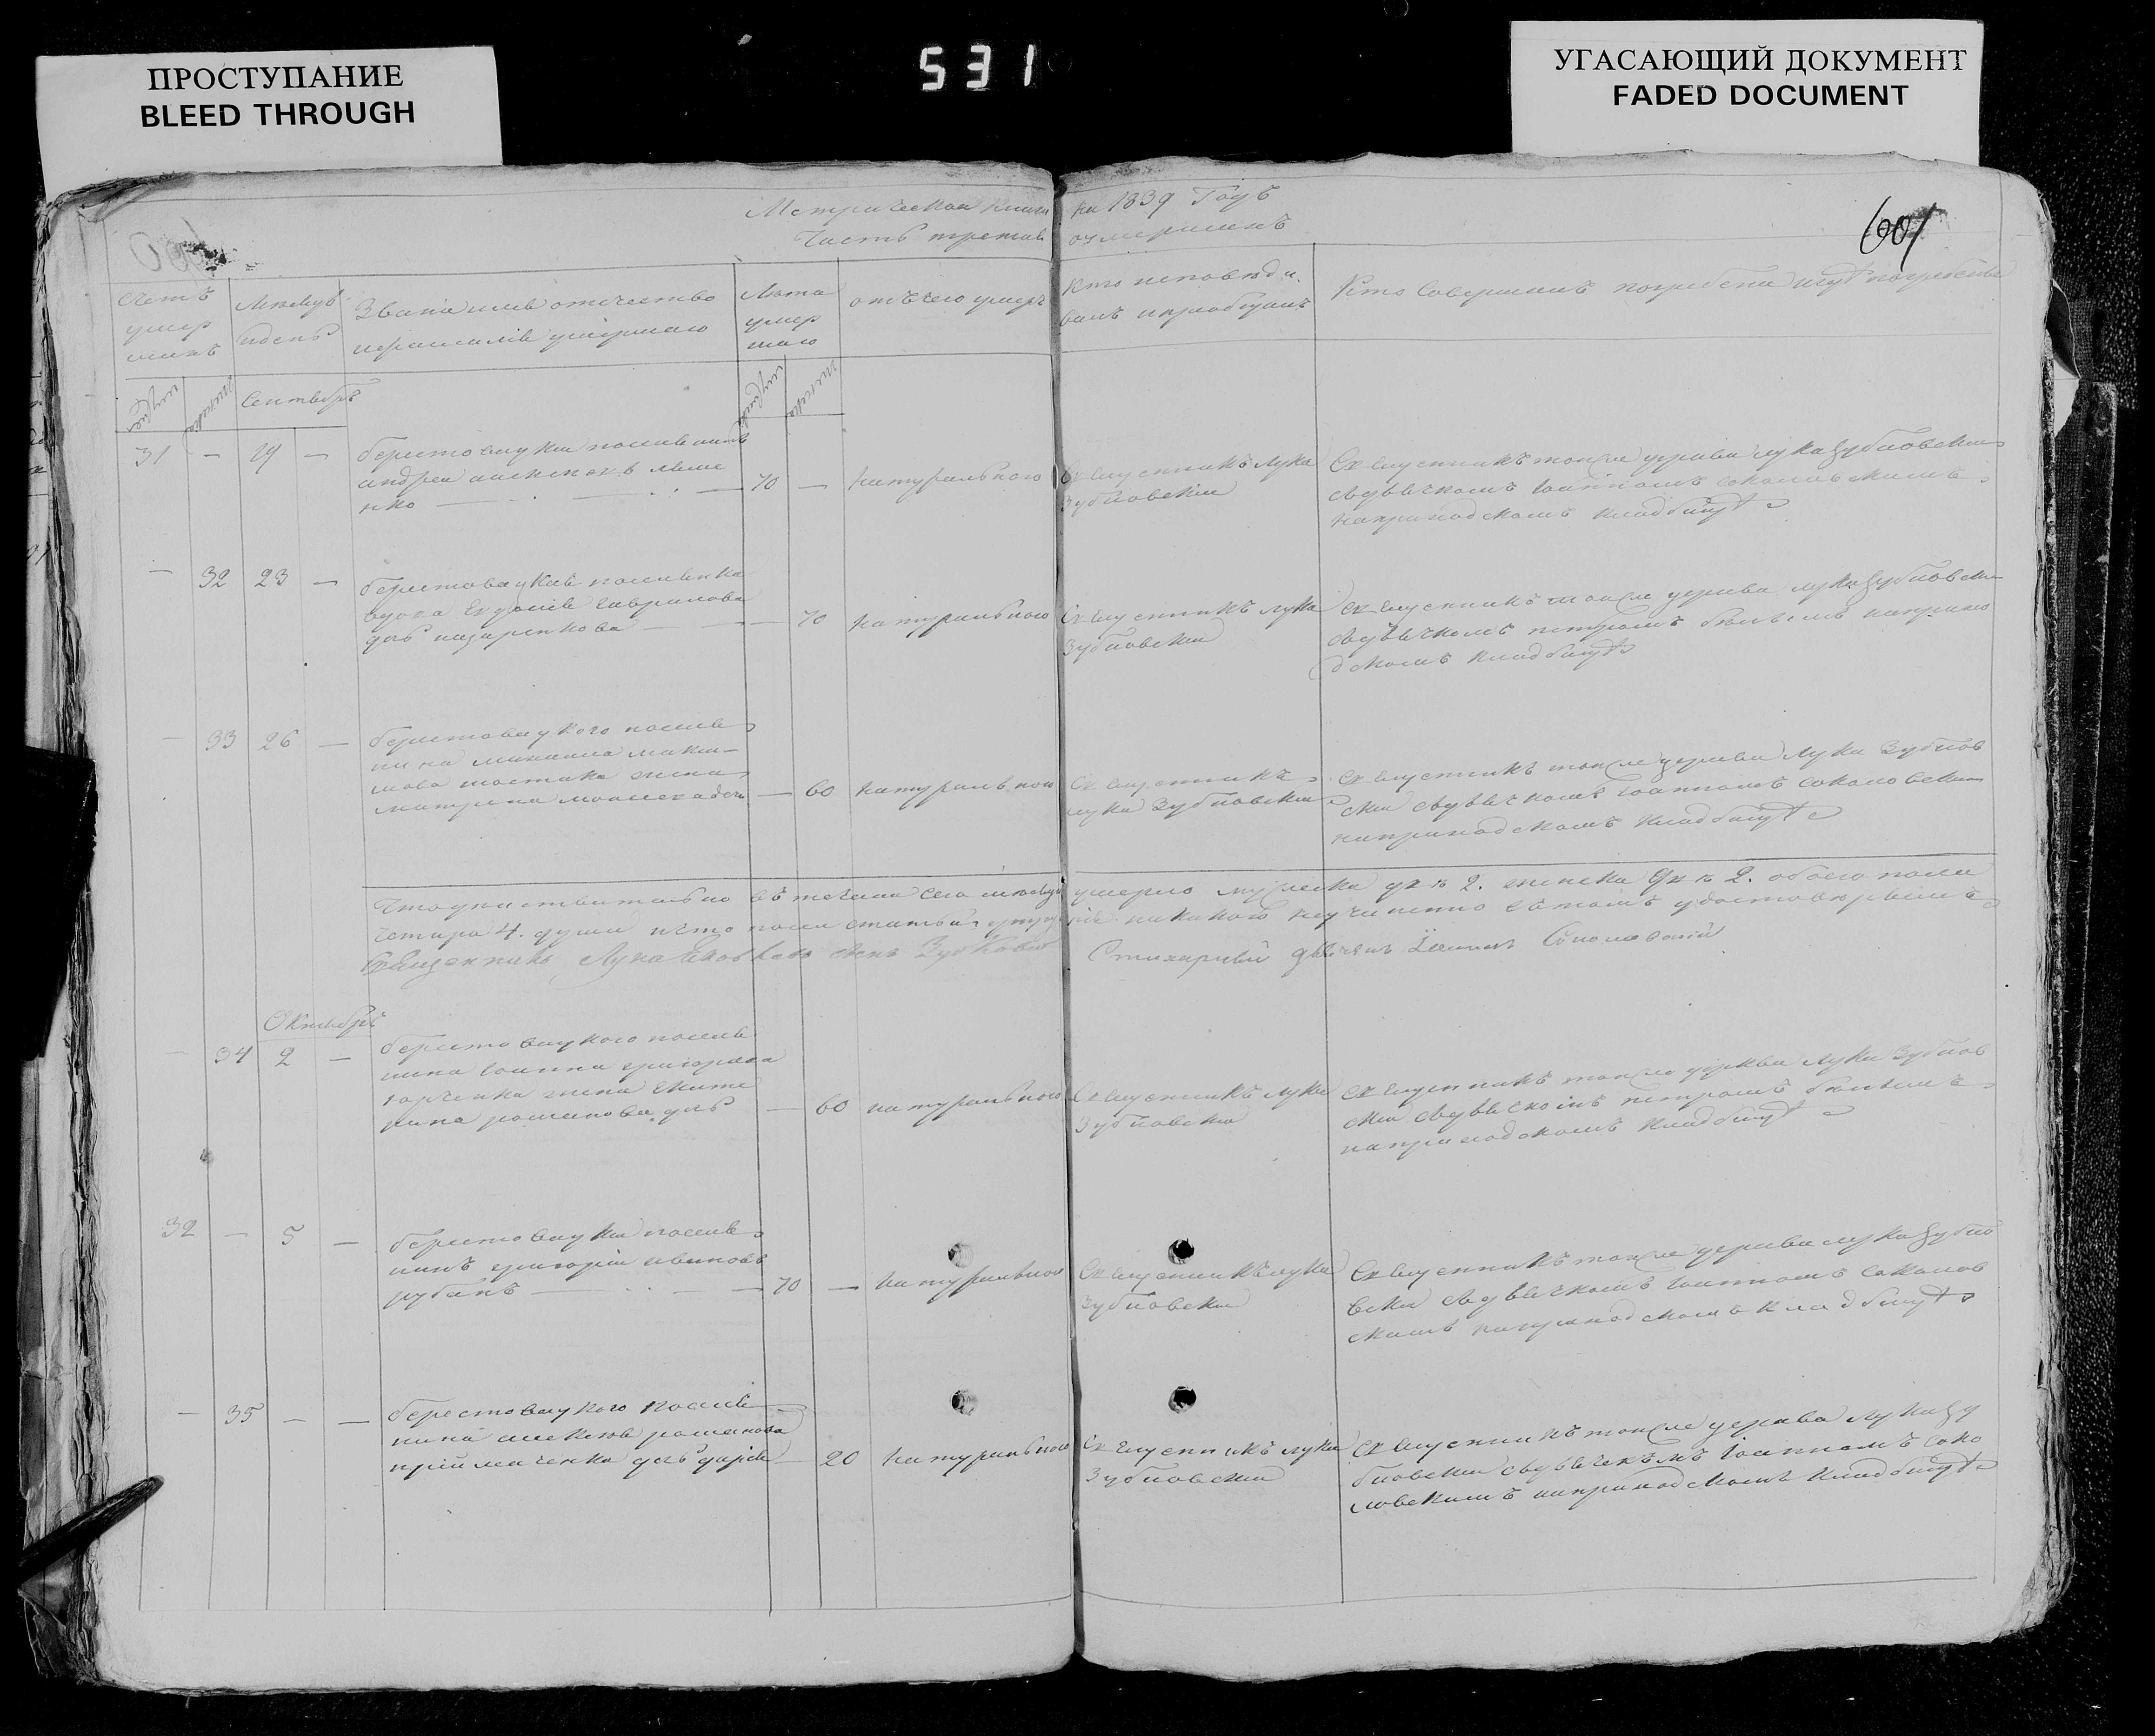 ПРОСТУПАНИЕ
BLEED THROUGH
531
УГАСАЮЩИЙ ДОКУМЕНТ
FADED DOCUMENT
Метрической книги на 1839 Годъ
Часть третая оумершихъ
601
Счетъ умер шихъ
Месецъ иденъ
Званiе имя отечество
ифамилiя умершаго
Лета умер шаго
отъчего умеръ
Кто исповеды
валъ иприобщалъ
Кто Совершилъ погребенiе игде погребены
Сентябрь
31 — 19 —
берестовецкiи поселянинъ
андреи
нко — 70 — натуральною
Священникъ Лука
Зубковскiи
Священникъ тоиже церкви лука Зубковскiи
сдьячкомъ Iоанномъ соколовскимъ
наприходскомъ кладбище
— 32 23 —
берестовецкая поселянка
вдова Евдокiя гаврилова
дочь назаренкова — 70 натуральною
Священникъ лука
Зубковскiи
Священникъ тоиже церкви лука Зубковскiи
сдьячкомъ петромъ наприхо
дскомъ кладбище
— 33 26 —
берестовецкого поселя
нина михаила макси
мова жена
матрона — 60 натуральною
Священникъ
лука Зубковскiи
Священникъ тоиже церкви Лука Зубков
скiи сдьячкомъ Iоанномъ соколовским
наприходскомъ кладбище
Чтодействительно въ теченiи сего месеца умерло мужеска 2. женска 2. обоего пола
четыре 4. души ичто никакого неучинено вътомъ удостоверяемъ
Священникъ Лука Зубковскiй Стихарный дьячекъ Iоаннъ Соколовскiй
Октябрь
— 34 2 —
берестовецкого поселя
нина Iоанна григорiева
юрченка жена Екате
рина романова дочь — 60 натуральною
Священникъ Лука
Зубковскiи
Священникъ тоиже церкви Лука Зубков
скiи сдьячкомъ петромъ
наприходскомъ кладбище
32 — 5 —
берестовецкiи поселя
нинъ григорiи ивановъ
рубанъ — 70 — натуральною
Священникъ лука
Зубковскiи
Священникъ тоиже церкви лука Зубко
вскiи сдьячкомъ Iоанномъ соколов
скимъ наприходскомъ кладбище
— 35 — —
берестовецкого поселя
нина алексея романова
прiймаченка дочь дарiя — 20 натуральною
Священникъ лука
Зубковскiи
Священникъ тоиже церкви Лука Зу
бковскiи сдьячекомъ Iоанномъ соко
ловскимъ наприходскомъ кладбище